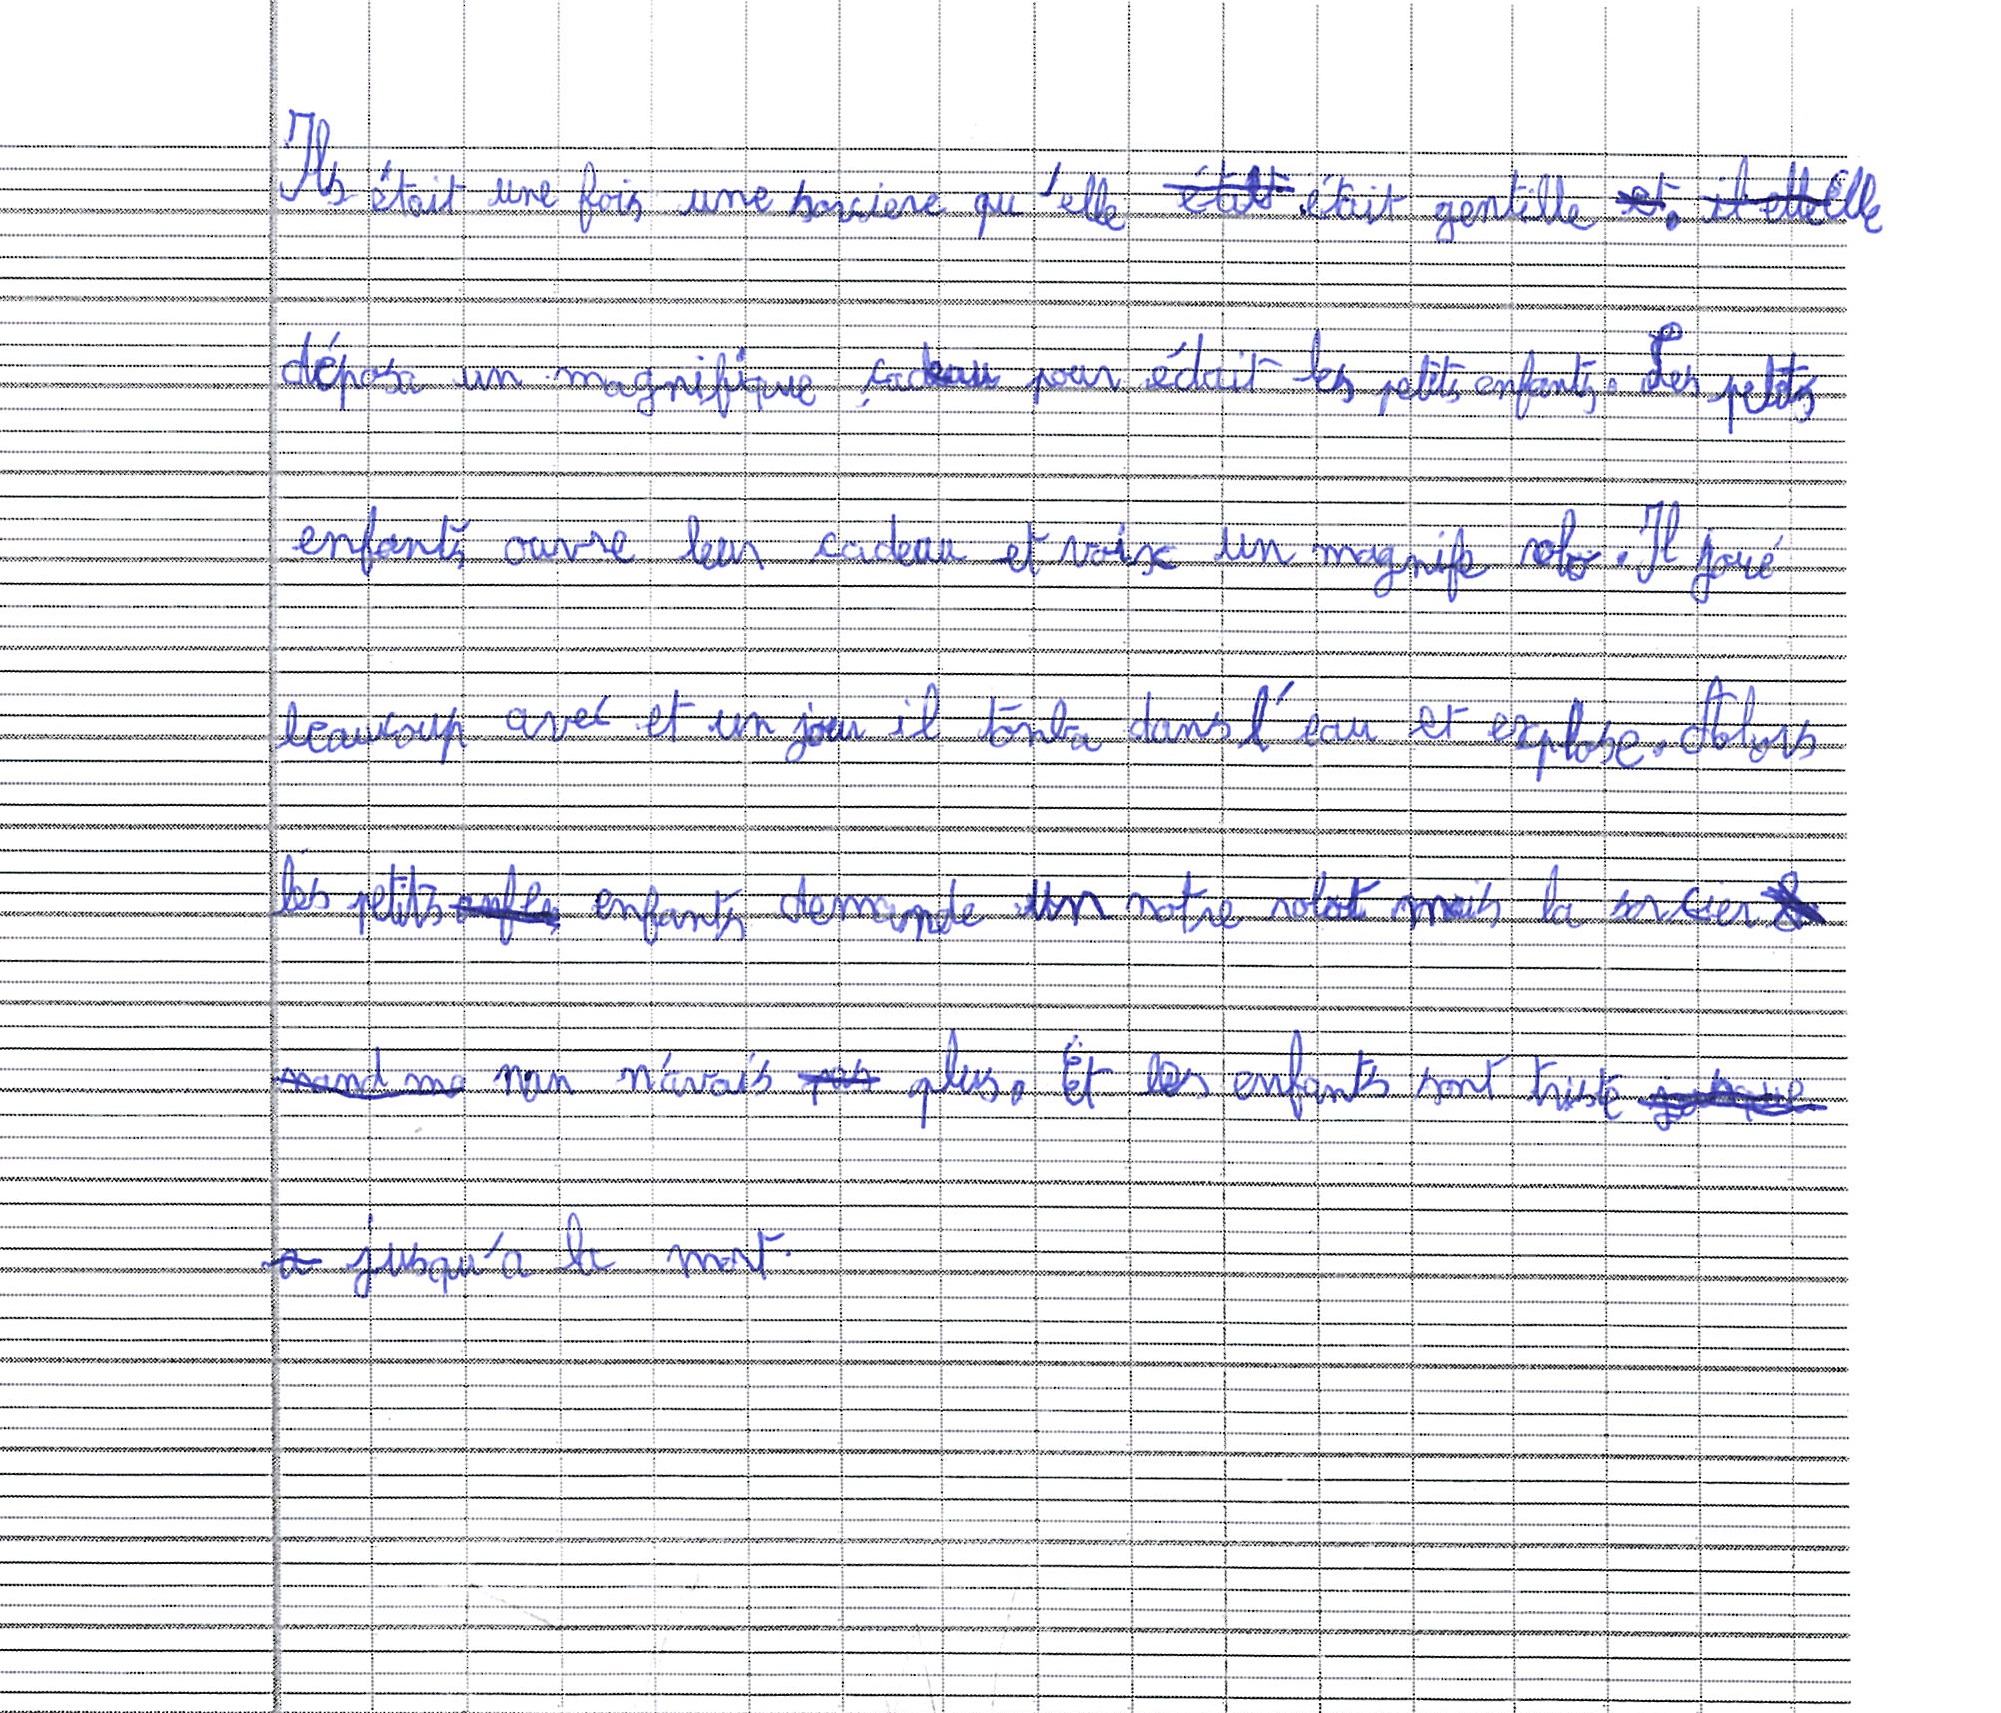 Ils était une fois une sorciere qu'elle était gentille. Elle
déposa un magnifique cadeau pour était les petits enfants. Les petits
enfants ouvre leur cadeau et voix un magnifik robo. Il joué
beaucoup avec et un jour il tonba dans l'eau et explose. Alors
les petits enfants demande un notre robot mais la sorcier
nan n'avais plus. Et les enfants sont triste
jusqu'a la mort.